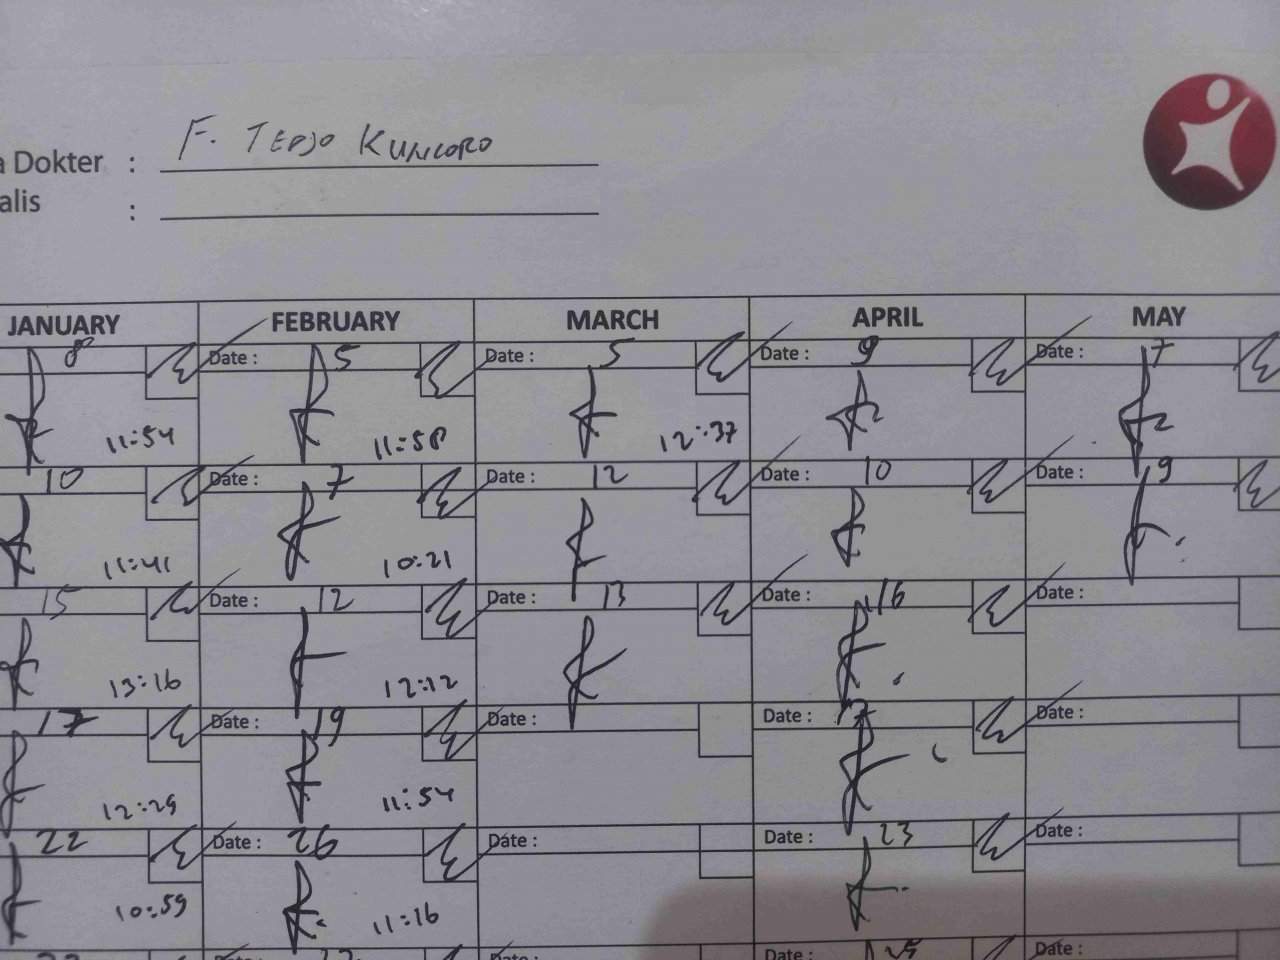 a Dokter : F. TEDJO KUNCORO
alis :
JANUARY FEBRUARY MARCH APRIL MAY
8 Date : 5 Date : 5 Date : 9 Date : 7
11:54 11:58 12:37
10 Date : 7 Date : 12 Date : 10 Date : 9
11:41 10:21
15 Date : 12 Date : 13 Date : 16 Date :
13:16 12:12
17 Date : 19 Date : Date : Date :
12:29 11:54
22 Date : 26 Date : Date : 23 Date :
10:59 11:16
Date : Date : Date :